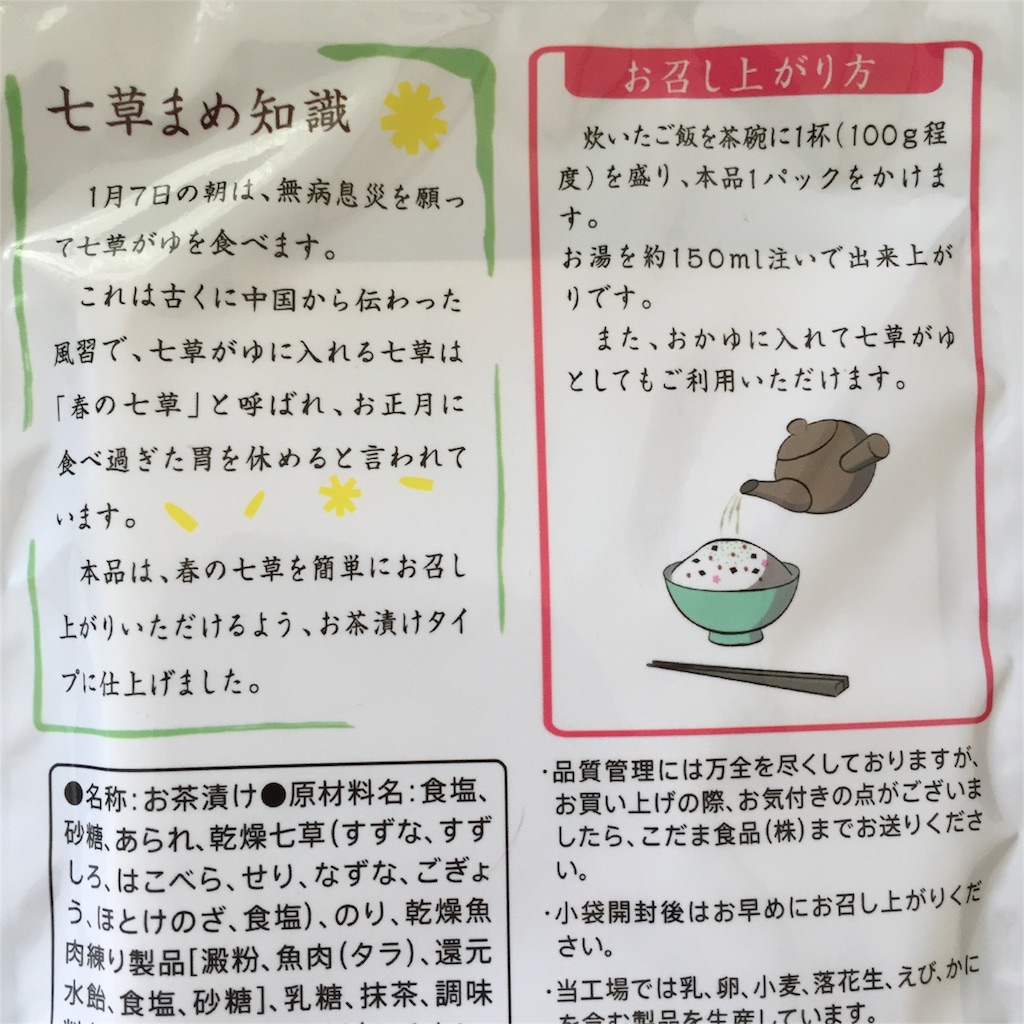 七草まめ知識
1月7日の朝は、無病息災を願っ
て七草がゆを食べます。
これは古くに中国から伝わった
風習で、七草がゆに入れる七草は
「春の七草」と呼ばれ、お正月に
食べ過ぎた胃を休めると言われて
います。
本品は、春の七草を簡単にお召し
上がりいただけるよう、お茶漬けタイ
プに仕上げました。
お召し上がり方
炊いたご飯を茶碗に1杯(100g程
度)を盛り、本品1パックをかけま
す。
お湯を約150ml注いで出来上が
りです。
また、おかゆに入れて七草がゆ
としてもご利用いただけます。
●名称:お茶漬け●原材料名:食塩、
砂糖、あられ、乾燥七草(すずな、すず
しろ、はこべら、せり、なずな、ごぎょ
う、ほとけのざ、食塩)、のり、乾燥魚
肉練り製品[澱粉、魚肉(タラ)、還元
水飴、食塩、砂糖]、乳糖、抹茶、調味
・品質管理には万全を尽くしておりますが、
お買い上げの際、お気付きの点がございま
したら、こだま食品(株)までお送りくださ
い。
・小袋開封後はお早めにお召し上がりくだ
さい。
・当工場では乳、卵、小麦、落花生、えび、かに
を含む製品を生産しています。